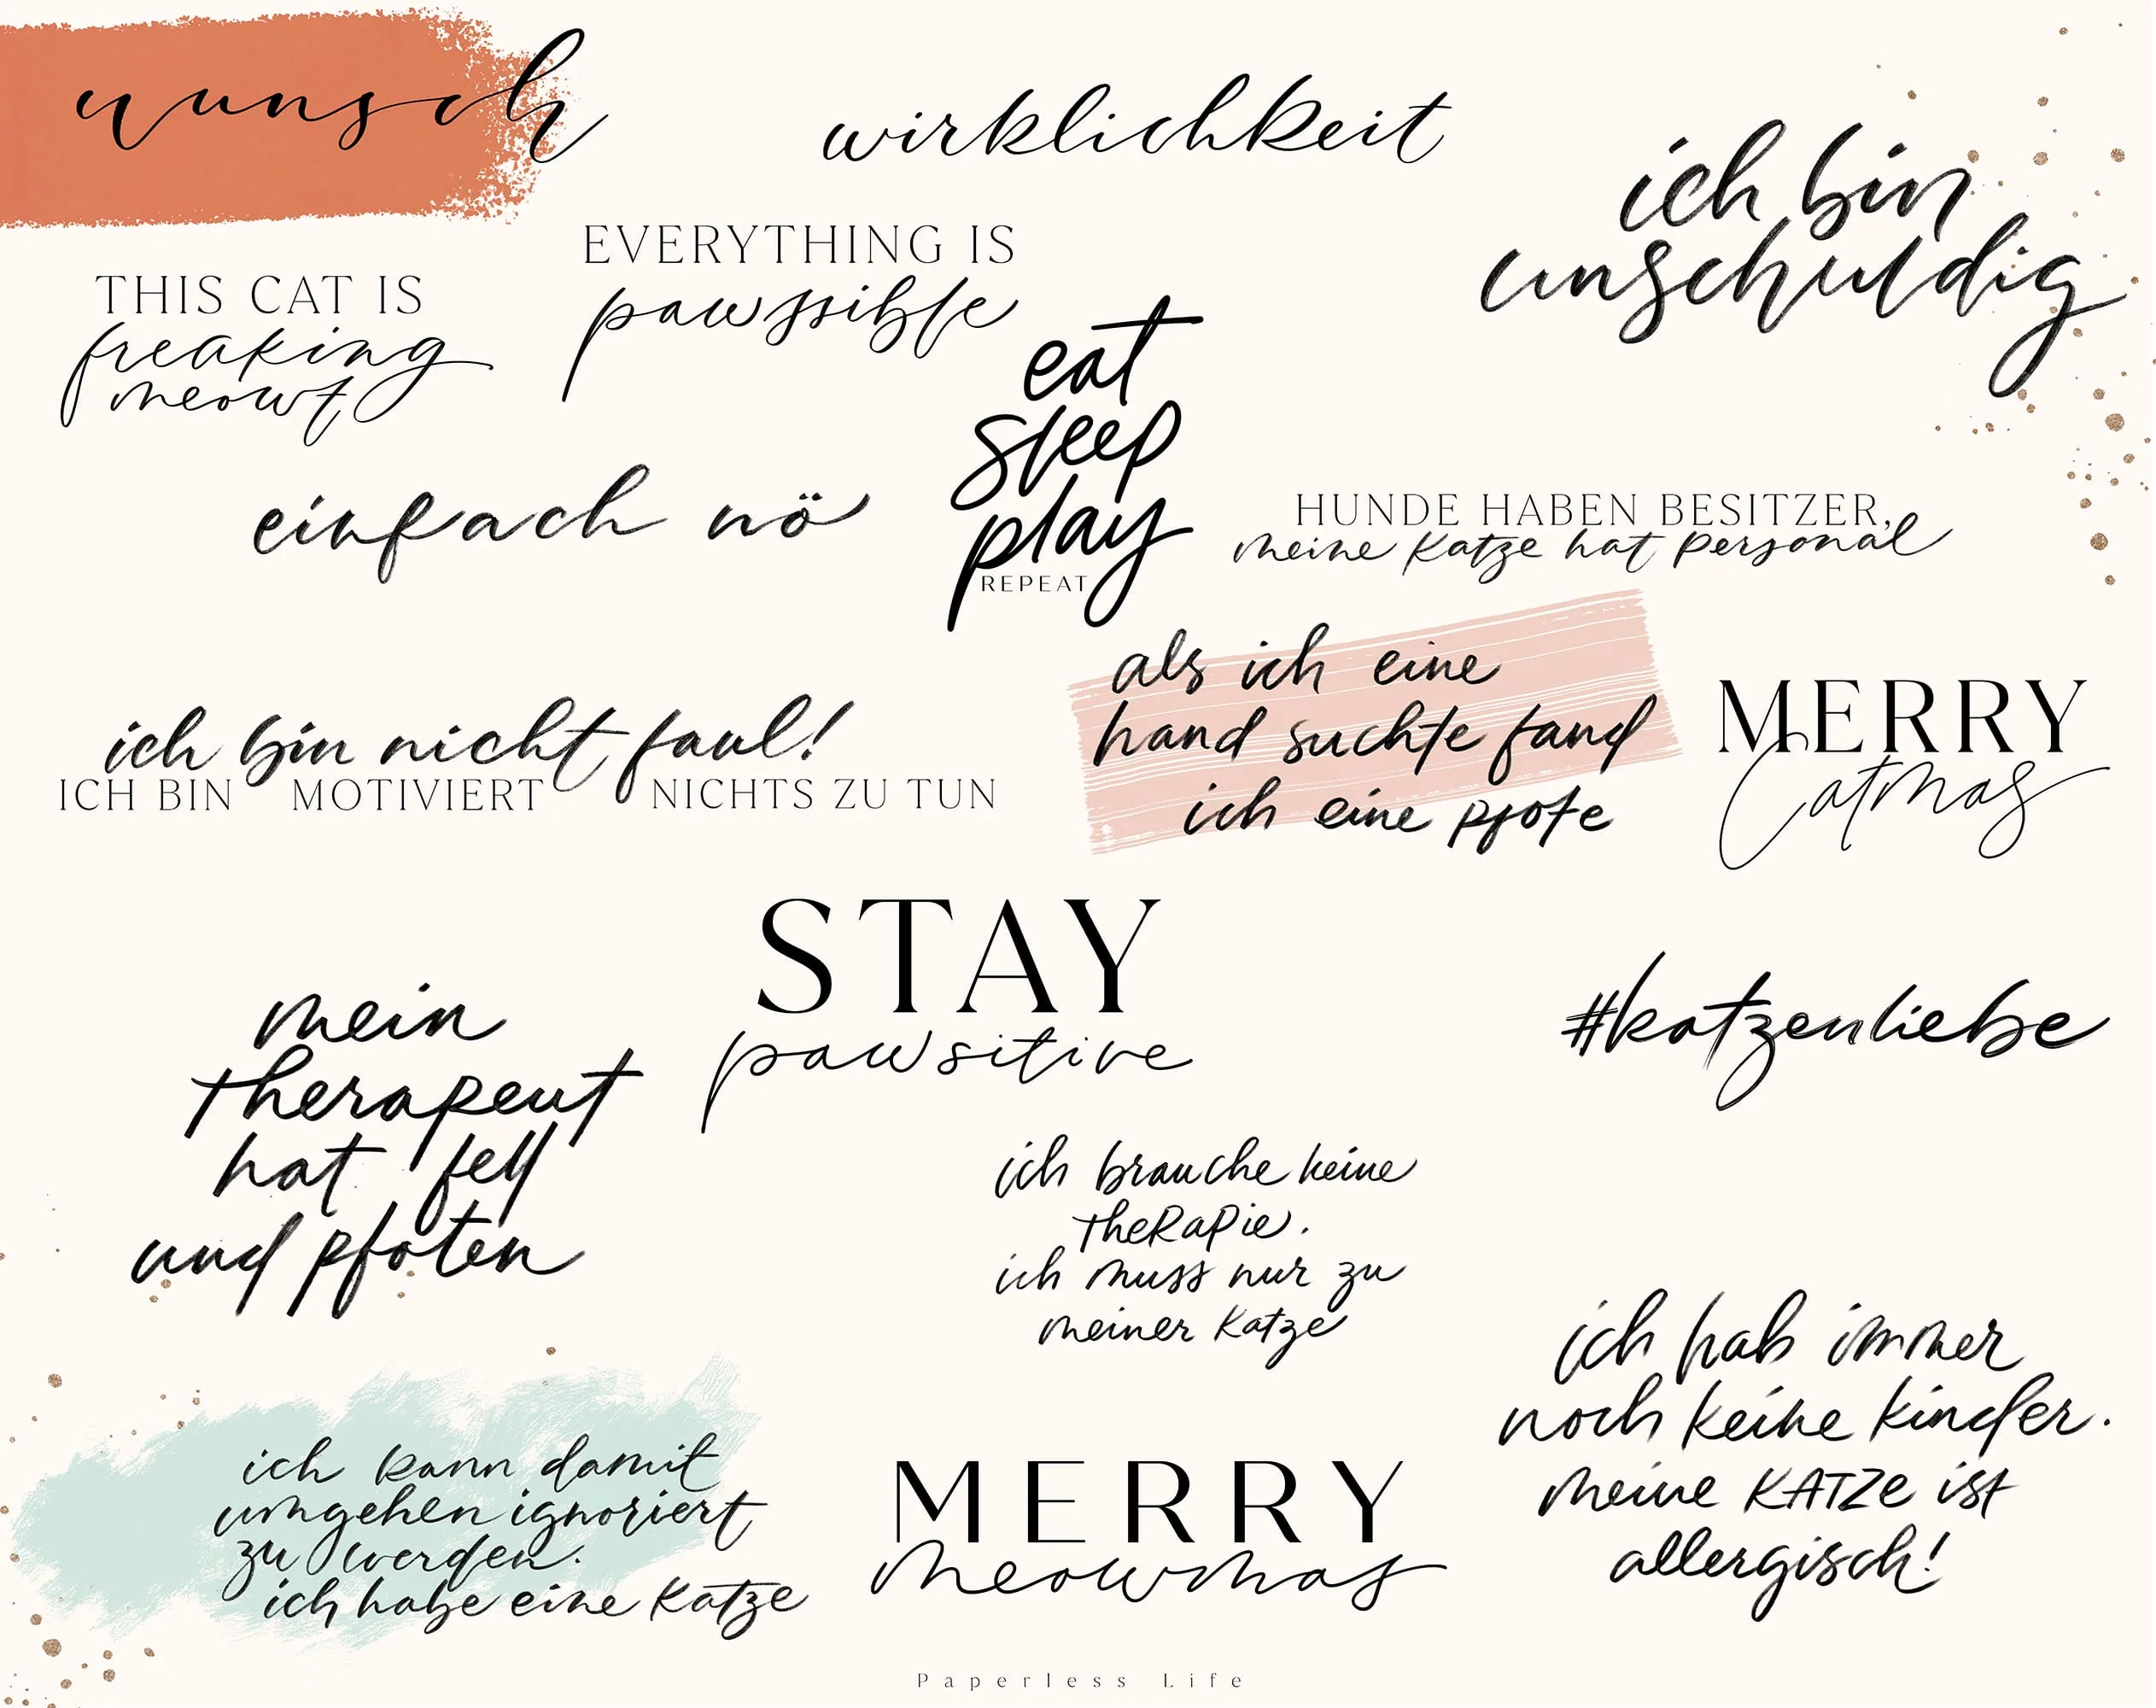 wunsch
wirklichkeit
ich bin
unschuldig
EVERYTHING IS
pawssible
THIS CAT IS
freaking
meowf
eat
sleep
play
REPEAT
einfach nö
HUNDE HABEN BESITZER,
meine Katze hat personal
als ich eine
hand suchte fand
ich eine pfote
ich bin nicht faul!
ICH BIN MOTIVIERT NICHTS ZU TUN
MERRY
Catmas
STAY
pawsitive
#katzenliebe
mein
therapeut
hat fell
und pfoten
ich brauche keine
theRapie.
ich muss nur zu
meiner Katze
ich hab immer
noch keine kinder.
meine KATZe ist
allergisch!
ich kann damit
umgehen ignoriert
zu werden.
ich habe eine Katze
MERRY
Meowmas
Paperless Life